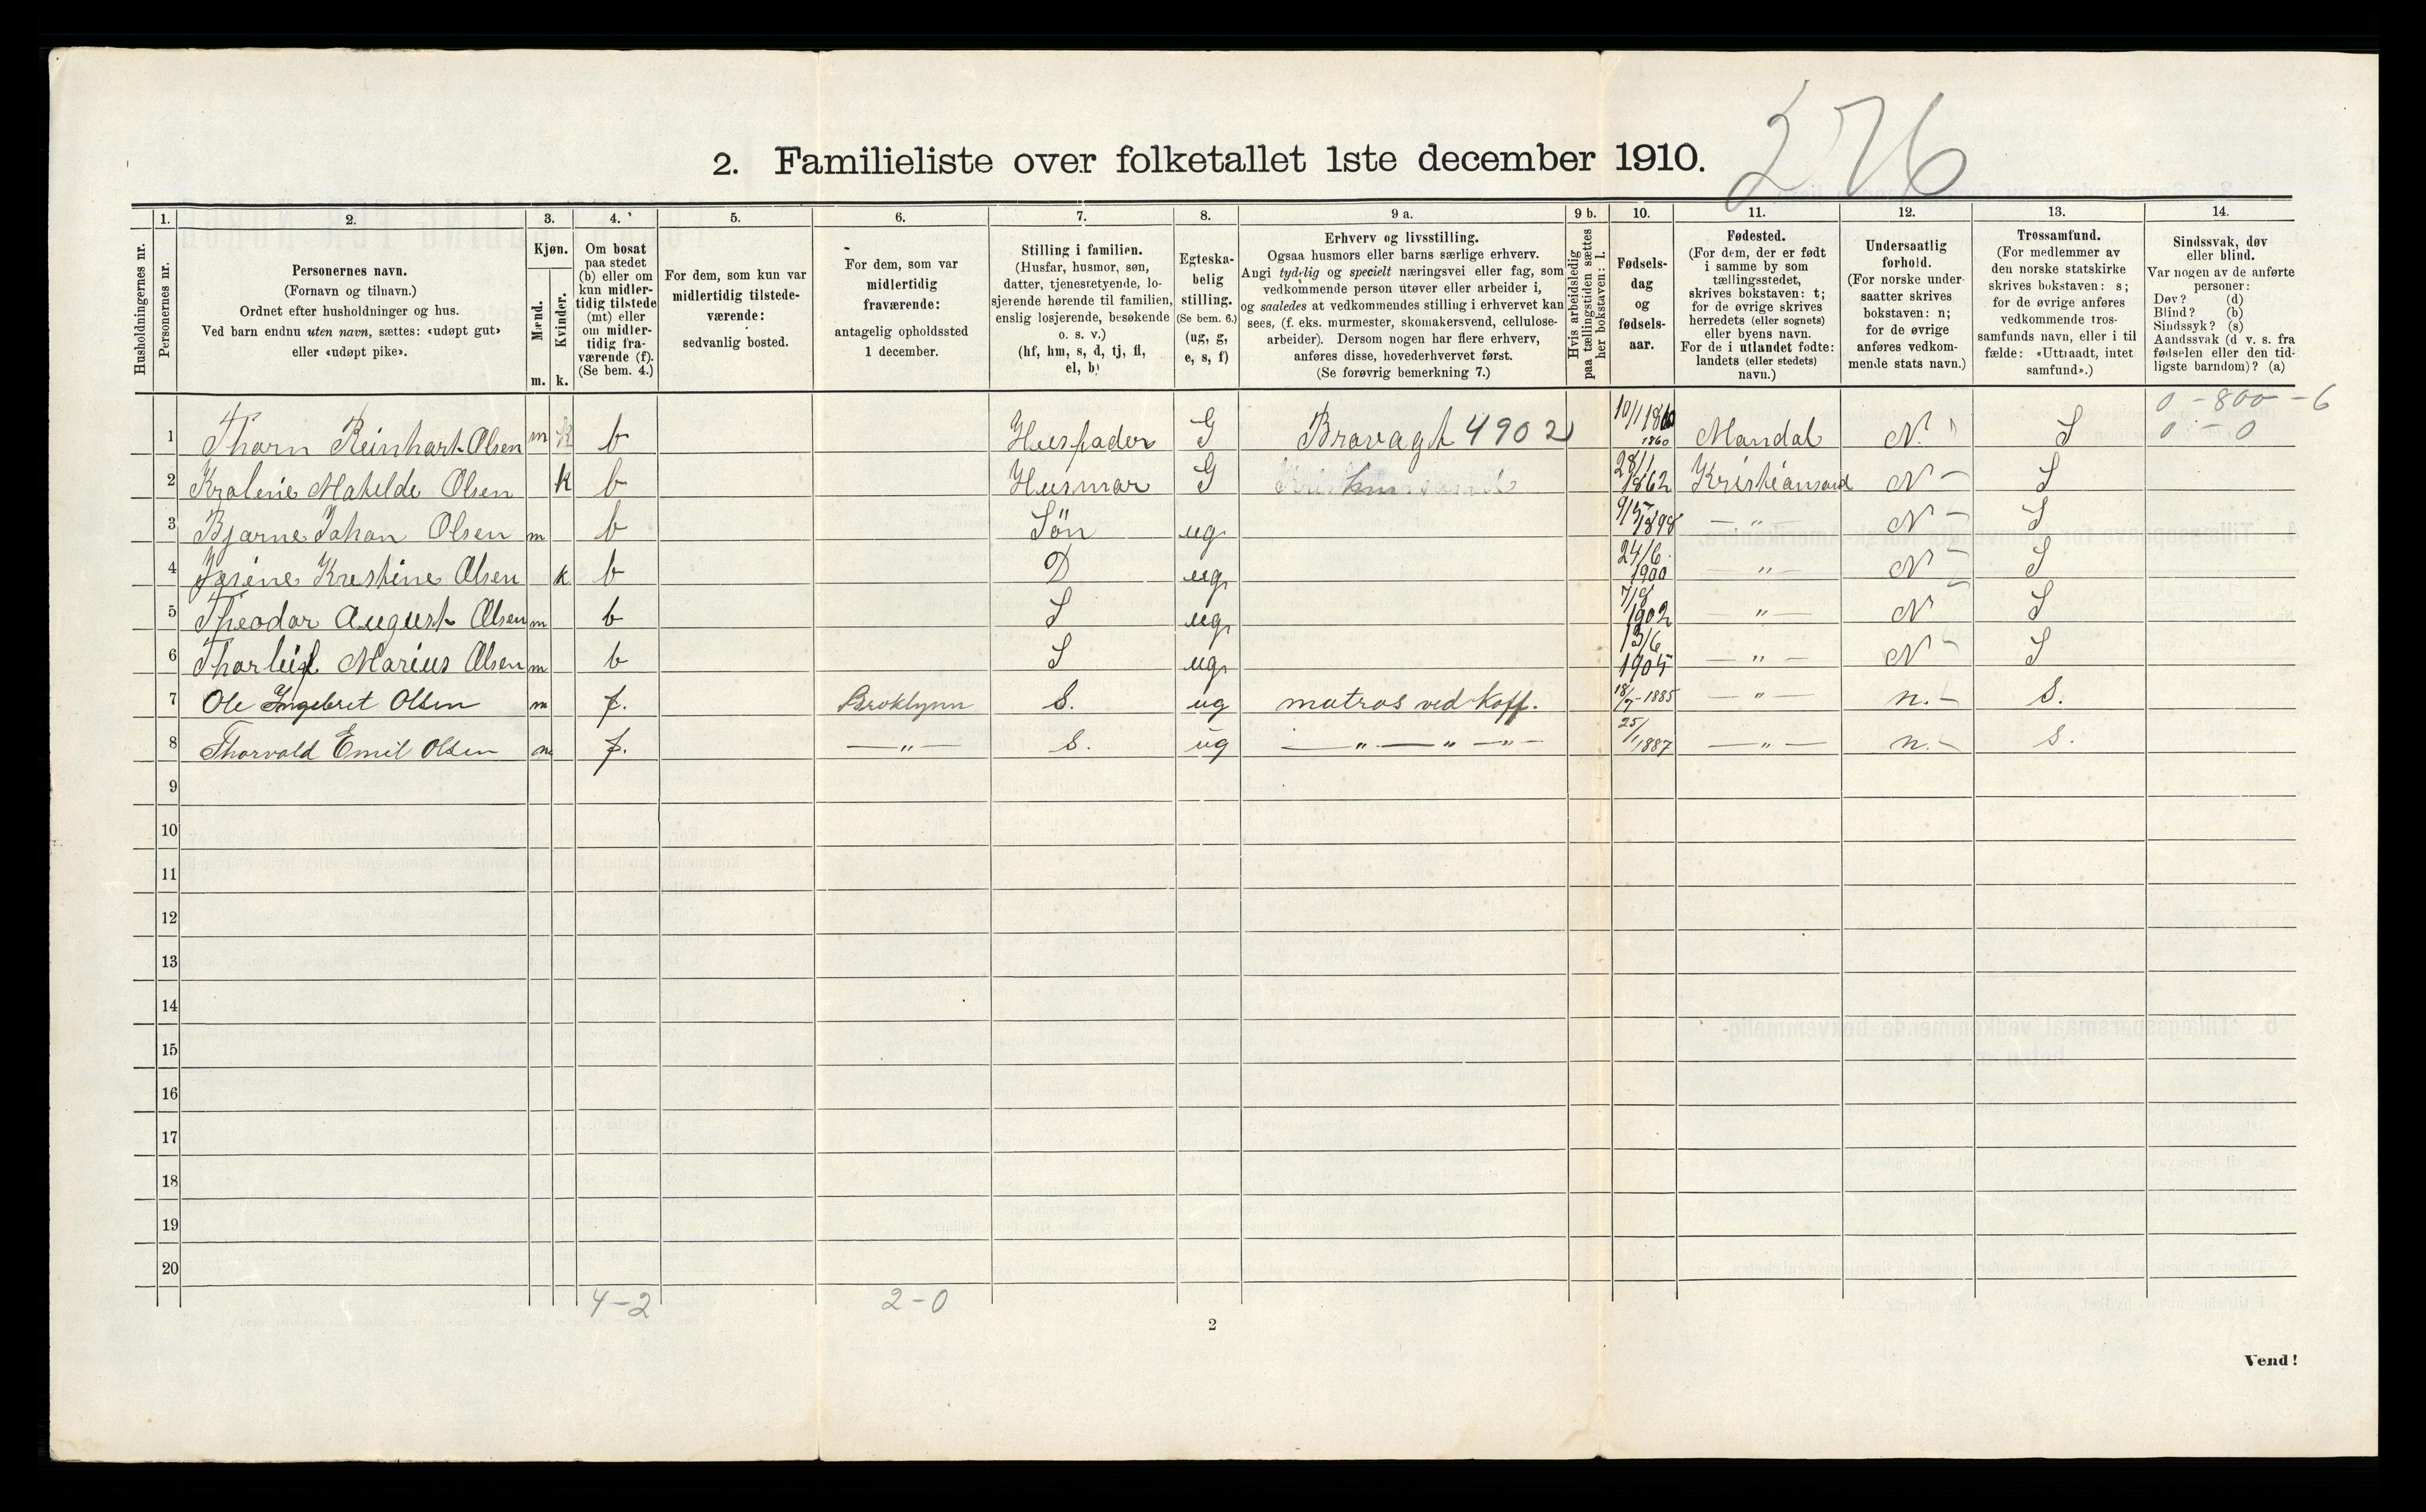 276
2. Familieliste over folketallet 1ste december 1910.
Husholdningernes nr.
1.
Personernes nr.
2.
Personernes navn.
(Fornavn og tilnavn.)
Ordnet efter husholdninger og hus.
Ved barn endnu uten navn, sættes: «udøpt gut»
eller «udøpt pike».
3.
Kjøn.
Mænd.
Kvinder.
m. k.
4.
Om bosat
paa stedet
(b) eller om
kun midler-
tidig tilstede
(mt) eller
om midler-
tidig fra-
værende (f).
(Se bem. 4.)
5.
For dem, som kun var
midlertidig tilstede-
værende:
sedvanlig bosted.
6.
For dem, som var
midlertidig
fraværende:
antagelig opholdssted
1 december.
7.
Stilling i familien.
(Husfar, husmor, søn,
datter, tjenestetyende, lo-
sjerende hørende til familien,
enslig losjerende, besøkende
o. s. v.)
(hf, hm, s, d, tj, fl,
el, b)
8.
Egteska-
belig
stilling.
(Se bem. 6.)
(ug, g,
e, s, f)
9 a.
Erhverv og livsstilling.
Ogsaa husmors eller barns særlige erhverv.
Angi tydelig og specielt næringsvei eller fag, som
vedkommende person utøver eller arbeider i,
og saaledes at vedkommendes stilling i erhvervet kan
sees, (f. eks. murmester, skomakersvend, cellulose-
arbeider). Dersom nogen har flere erhverv,
anføres disse, hovederhvervet først.
(Se forøvrig bemerkning 7.)
9 b.
Hvis arbeidsledig
paa tællingstiden sættes
her bokstaven: l.
10.
Fødsels-
dag
og
fødsels-
aar.
11.
Fødested.
(For dem, der er født
i samme by som
tællingsstedet,
skrives bokstaven: t;
for de øvrige skrives
herredets (eller sognets)
eller byens navn.
For de i utlandet fødte:
landets (eller stedets)
navn.)
12.
Undersaatlig
forhold.
(For norske under-
saatter skrives
bokstaven: n;
for de øvrige
anføres vedkom-
mende stats navn.)
13.
Trossamfund.
(For medlemmer av
den norske statskirke
skrives bokstaven: s;
for de øvrige anføres
vedkommende tros-
samfunds navn, eller i til
fælde: «Uttraadt, intet
samfund».)
14.
Sindssvak, døv
eller blind.
Var nogen av de anførte
personer:
Døv? (d)
Blind? (b)
Sindssyk? (s)
Aandssvak (d v. s. fra
fødselen eller den tid-
ligste barndom)? (a)
0 - 800 - 6
0 - 0
1 Thorn Reinhart Olsen m k b Husfader G Brovagt 4902 10/1 1860 1860 Mandal N. S
2 Kralene Mahelde Olsen k b Husmor G hm 28/1 1862 Kristiansand N - S
3 Bjarne Johan Olsen m b Sön ug 9/5 1898 — " — N - S
4 Jæsine Kristine Olsen k b D ug. 24/6 1900 — " — N - S
5 Theodor August Olsen m b S ug. 7/8 1902 — " — N - S
6 Thorleif Marius Olsen m b S ug. 13/6 1905 — " — N - S
7 Ole Ingebret Olsen m f. Broklynn S. ug matros ved koff. 18/7-1885 — " — n. - S.
8 Thorvald Emil Olsen m f. — " — S. ug — " — " — " — 25/1 1887 — " — n. - S.
9
10
11
12
13
14
15
16
17
18
19
20
4-2
2-0
2
Vend!